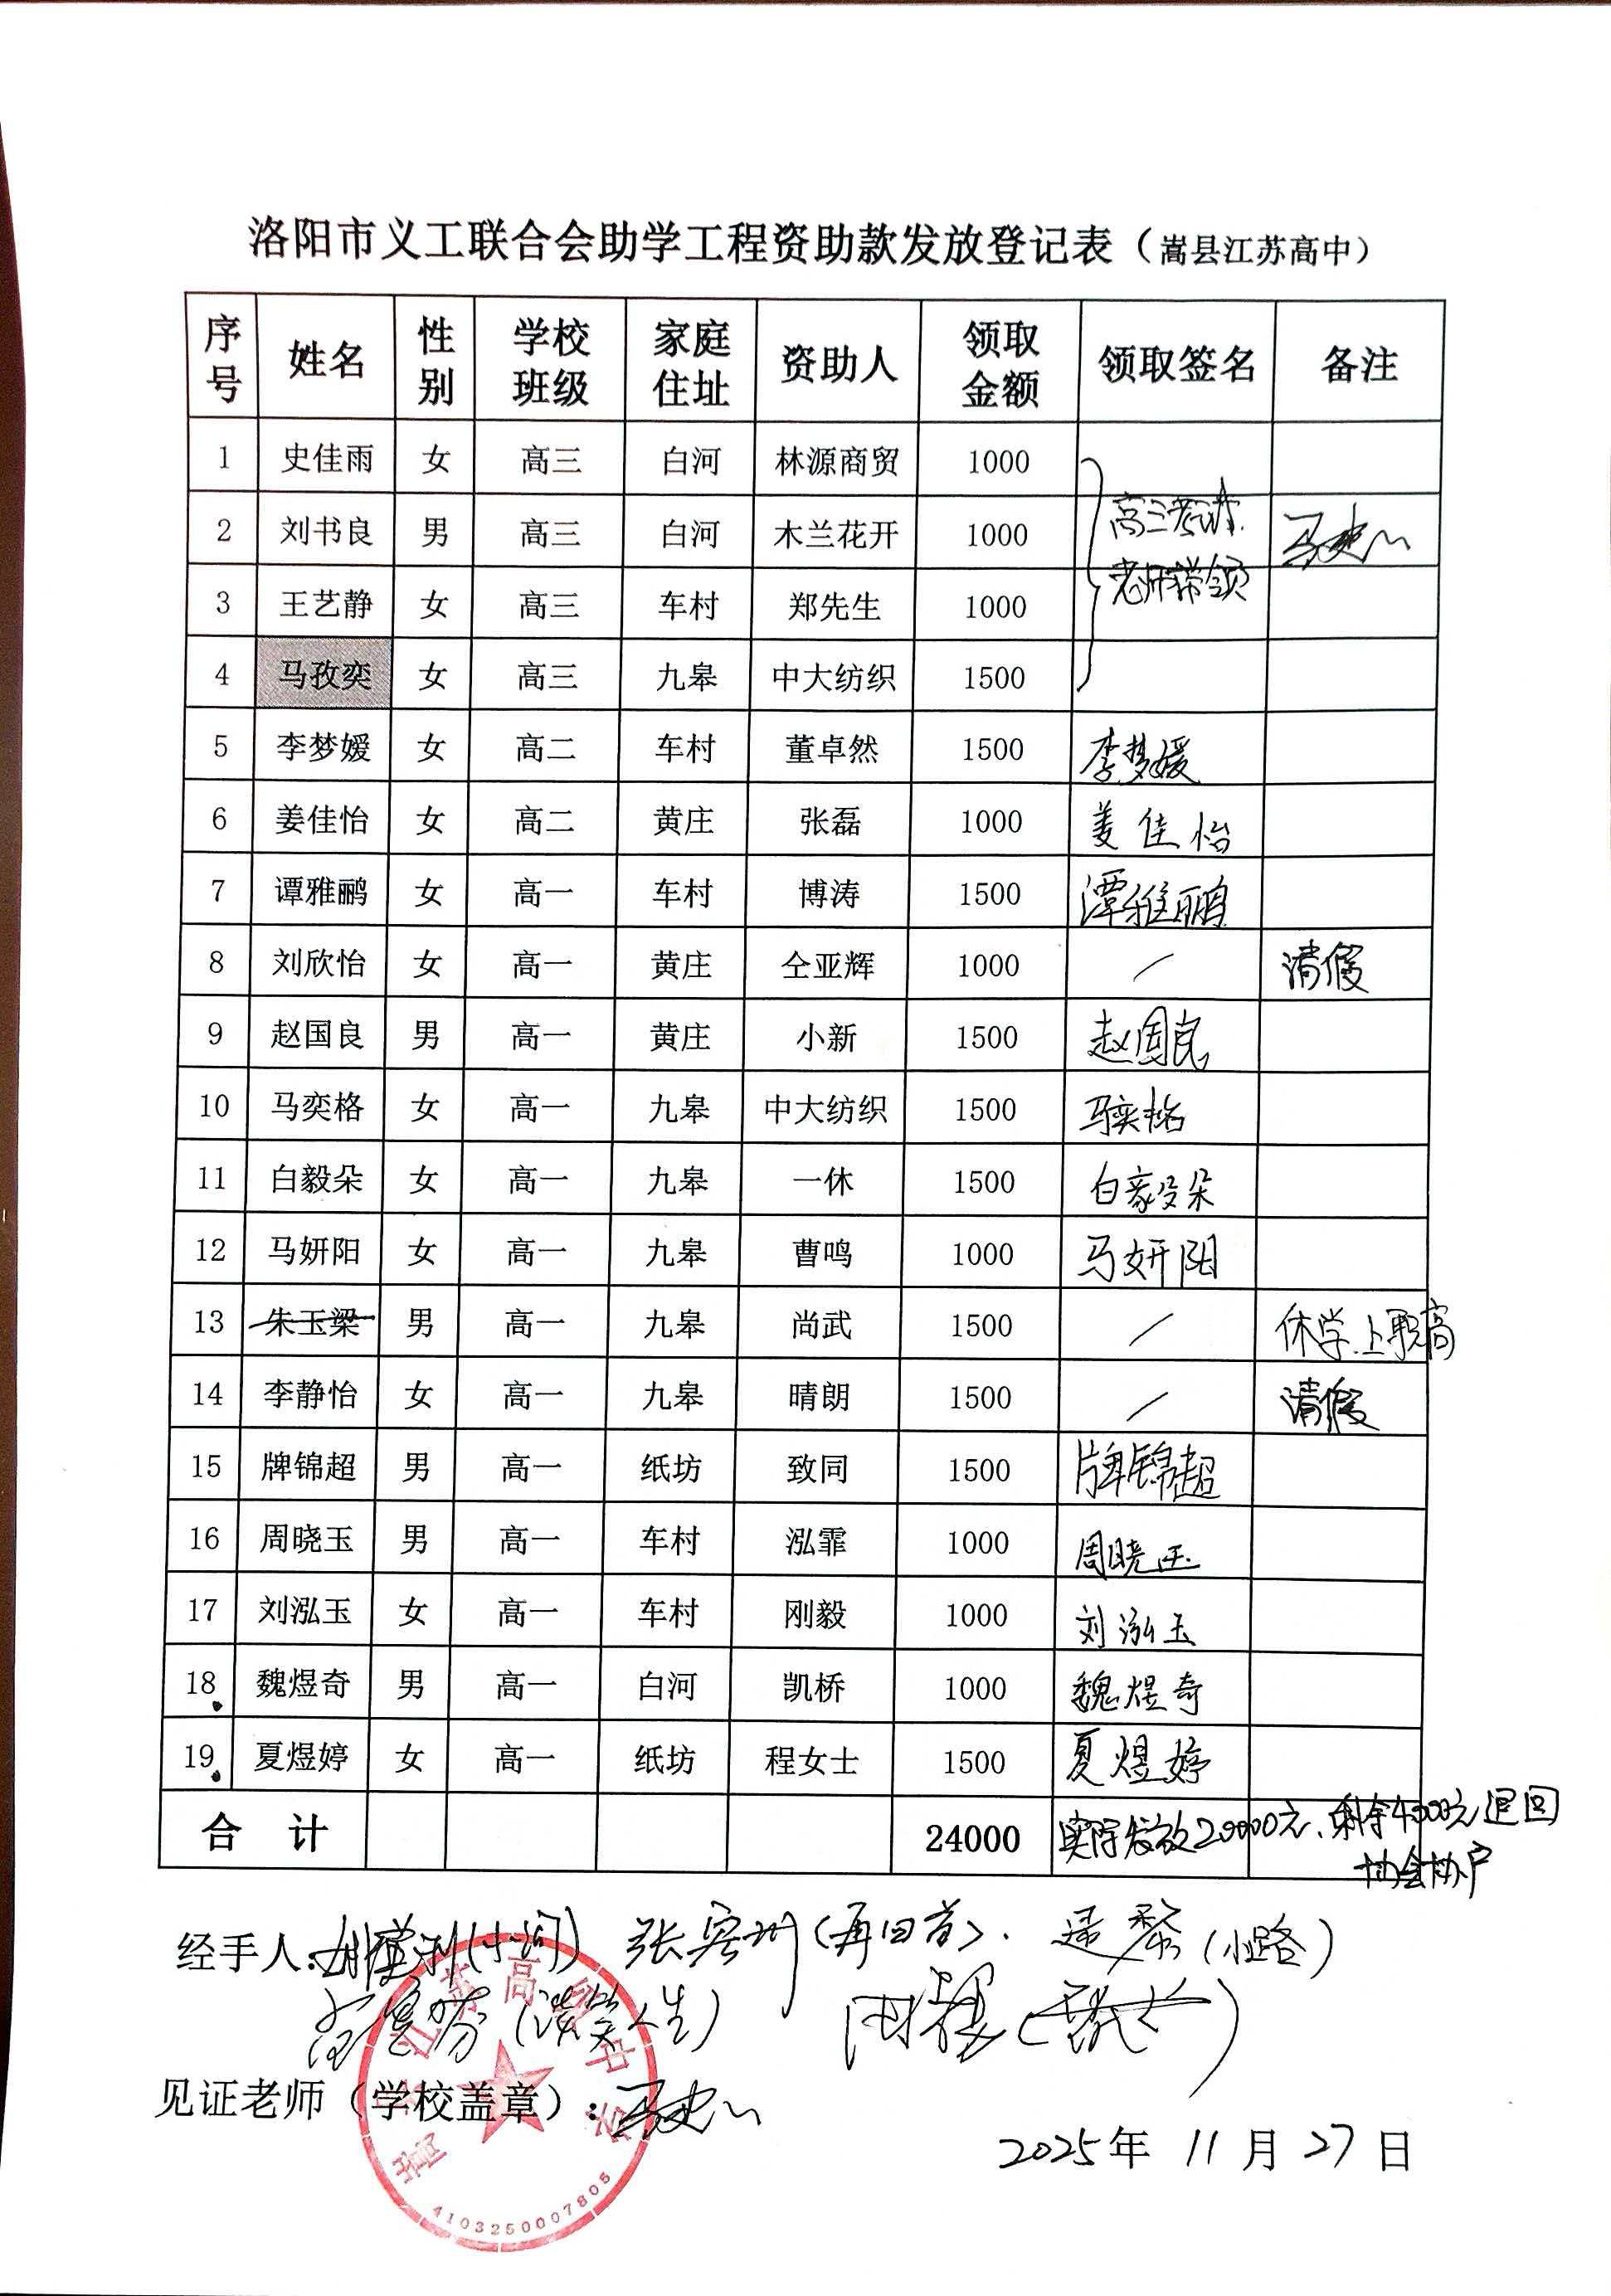 洛阳市义工联合会助学工程资助款发放登记表（嵩县江苏高中）
序号 姓名 性别 学校班级 家庭住址 资助人 领取金额 领取签名 备注
1 史佳雨 女 高三 白河 林源商贸 1000
2 刘书良 男 高三 白河 木兰花开 1000 高三考试.
3 王艺静 女 高三 车村 郑先生 1000 老师带领
4 马孜奕 女 高三 九皋 中大纺织 1500
5 李梦嫒 女 高二 车村 董卓然 1500 李梦媛
6 姜佳怡 女 高二 黄庄 张磊 1000 姜佳怡
7 谭雅鹂 女 高一 车村 博涛 1500 谭雅鹂
8 刘欣怡 女 高一 黄庄 仝亚辉 1000 / 请假
9 赵国良 男 高一 黄庄 小新 1500 赵国良
10 马奕格 女 高一 九皋 中大纺织 1500 马奕格
11 白毅朵 女 高一 九皋 一休 1500 白毅朵
12 马妍阳 女 高一 九皋 曹鸣 1000 马妍阳
13 朱玉梁 男 高一 九皋 尚武 1500 / 休学.上职高
14 李静怡 女 高一 九皋 晴朗 1500 / 请假
15 牌锦超 男 高一 纸坊 致同 1500 牌锦超
16 周晓玉 男 高一 车村 泓霏 1000 周晓玉
17 刘泓玉 女 高一 车村 刚毅 1000 刘泓玉
18. 魏煜奇 男 高一 白河 凯桥 1000 魏煜奇
19. 夏煜婷 女 高一 纸坊 程女士 1500 夏煜婷
合 计 24000 实际发放20000元、剩余4000元退回
协会协户
经手人: 张 (再回首)、 (小路)
(谈笑人生)
见证老师（学校盖章）:
2025年 11月 27日
4103250007805